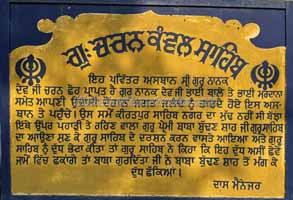 ਗੁ: ਚਰਨ ਕੰਵਲ ਸਾਹਿਬ
ਇਹ ਪਵਿੱਤਰ ਅਸਥਾਨ ਸ੍ਰੀ ਗੁਰੂ ਨਾਨਕ
ਦੇਵ ਜੀ ਚਰਨ ਛੋਹ ਪ੍ਰਾਪਤ ਹੈ ਗੁਰੂ ਨਾਨਕ ਦੇਵ ਜੀ ਭਾਈ ਬਾਲੇ ਤੇ ਭਾਈ ਮਰਦਾਨਾ
ਸਮੇਤ ਆਪਣੀ ਉਦਾਸੀ ਦੌਰਾਨ ਜਗਤ ਜਲੰਦੇ ਨੂੰ ਤਾਰਦੇ ਹੋਏ ਇਸ ਅਸ-
ਥਾਨ ਤੇ ਪਹੁੰਚੇ। ਉਸ ਸਮੇਂ ਕੀਰਤਪੁਰ ਸਾਹਿਬ ਨਗਰ ਦਾ ਮੁੱਢ ਨਹੀਂ ਸੀ ਬੱਝਾ
ਇਥੇ ਉਪਰ ਪਹਾੜੀ ਤੇ ਰਹਿਣ ਵਾਲਾ ਗੁਰੂ ਪ੍ਰੇਮੀ ਬਾਬਾ ਬੁੱਢਣ ਸ਼ਾਹ ਜੀ ਗੁਰੂਸਾਹਿਬ
ਦਾ ਆਉਣਾ ਸੁਣ ਕੇ ਗੁਰੂ ਸਾਹਿਬ ਦੇ ਦਰਸ਼ਨ ਕਰਨ ਵਾਸਤੇ ਆਇਆ ਅਤੇ ਗੁਰੂ
ਸਾਹਿਬ ਨੂੰ ਦੁੱਧ ਭੇਟਾ ਕੀਤਾ ਤਾਂ ਗੁਰੂ ਸਾਹਿਬ ਨੇ ਕਿਹਾ ਕਿ ਇਹ ਦੁੱਧ ਅਸੀਂ ਛੇਵੇਂ
ਜਾਮੇ ਵਿੱਚ ਛਕਾਂਗੇ ਤਾਂ ਬਾਬਾ ਗੁਰਦਿੱਤਾ ਜੀ ਨੇ ਬਾਬਾ ਬੁੱਢਣ ਸ਼ਾਹ ਤੋਂ ਮੰਗ ਕੇ
ਦੁੱਧ ਛਕਿਆ।
ਦਾਸ ਮੈਨੇਜਰ